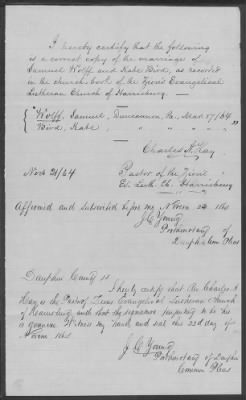 I hereby certify that the following
is a correct copy of the marriage of
Samuel Wolff and Kate Bird, as recorded
in the church book of the Zion's Evangelical
Lutheran Church of Harrisburg. —
"Wolff, Samuel, Duncannon, Pa. Mar. 17/64
Bird, Kate, " " " " "
Charles A. Hay
Nov. 21/64 Pastor of the Zion's
Ev. Luth. Ch. Harrisburg
Affirmed and subscribed before me Nov
J C Young
Prothonotary of
Dauphin Com Pleas
Dauphin County ss
I hereby certify that Rev Charles A
Hay is the Pastor of Zions Evangelical Lutheran Church
of Harrisburg and that the signature purporting to be his
is genuine Witness my hand and seal this 22d day of
J. C. Young
Prothonotary of Dauphin
Common Pleas